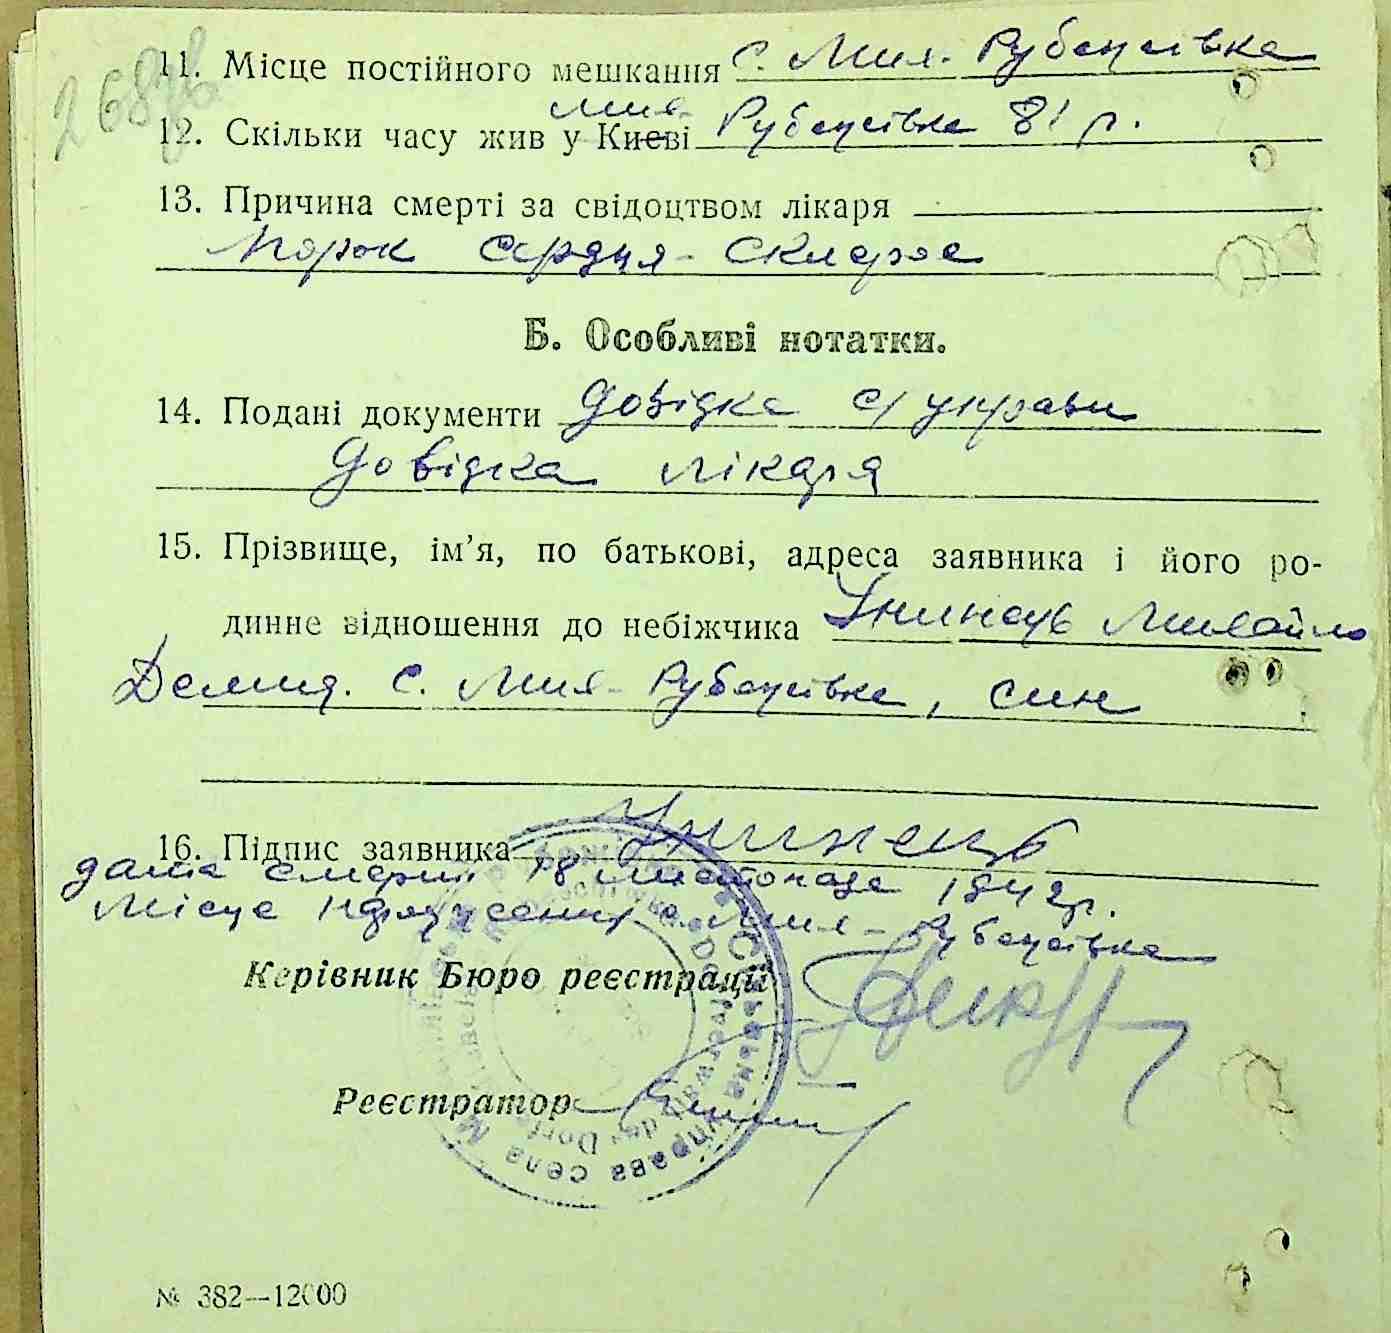 268зв
11. Місце постійного мешкання с. Мик. Рубежівка
Мик.
12. Скільки часу жив у Києві Рубежівка 81 р.
13. Причина смерті за свідоцтвом лікаря
Порок сердця - склероз
Б. Особливі нотатки.
14. Подані документи довідка с/управи
довідка лікаря
15. Прізвище, ім'я, по батькові, адреса заявника і його ро-
динне відношення до небіжчика Унинець Михайло
Демид. с. Мик-Рубежівка, син
16. Підпис заявника Унинець
дата смерти 18 листопада 1942 р.
Місце народження с. Мик-Рубежівка
Керівник Бюро реєстрації
Реєстратор
Сільська управа села
des Dorfes
№ 382—12000